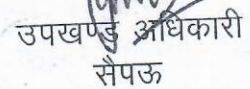 उपखण्ड अधिकारी
सैपऊ